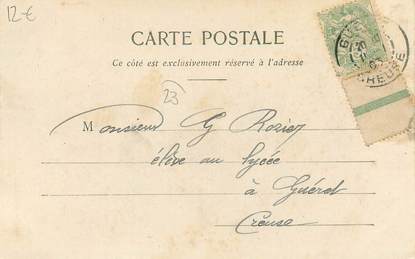 12-€
CARTE POSTALE
Ce côté est exclusivement réservé à l'adresse
23
Monsieur G Rozier
élève au lycée
à Guéret
Creuse